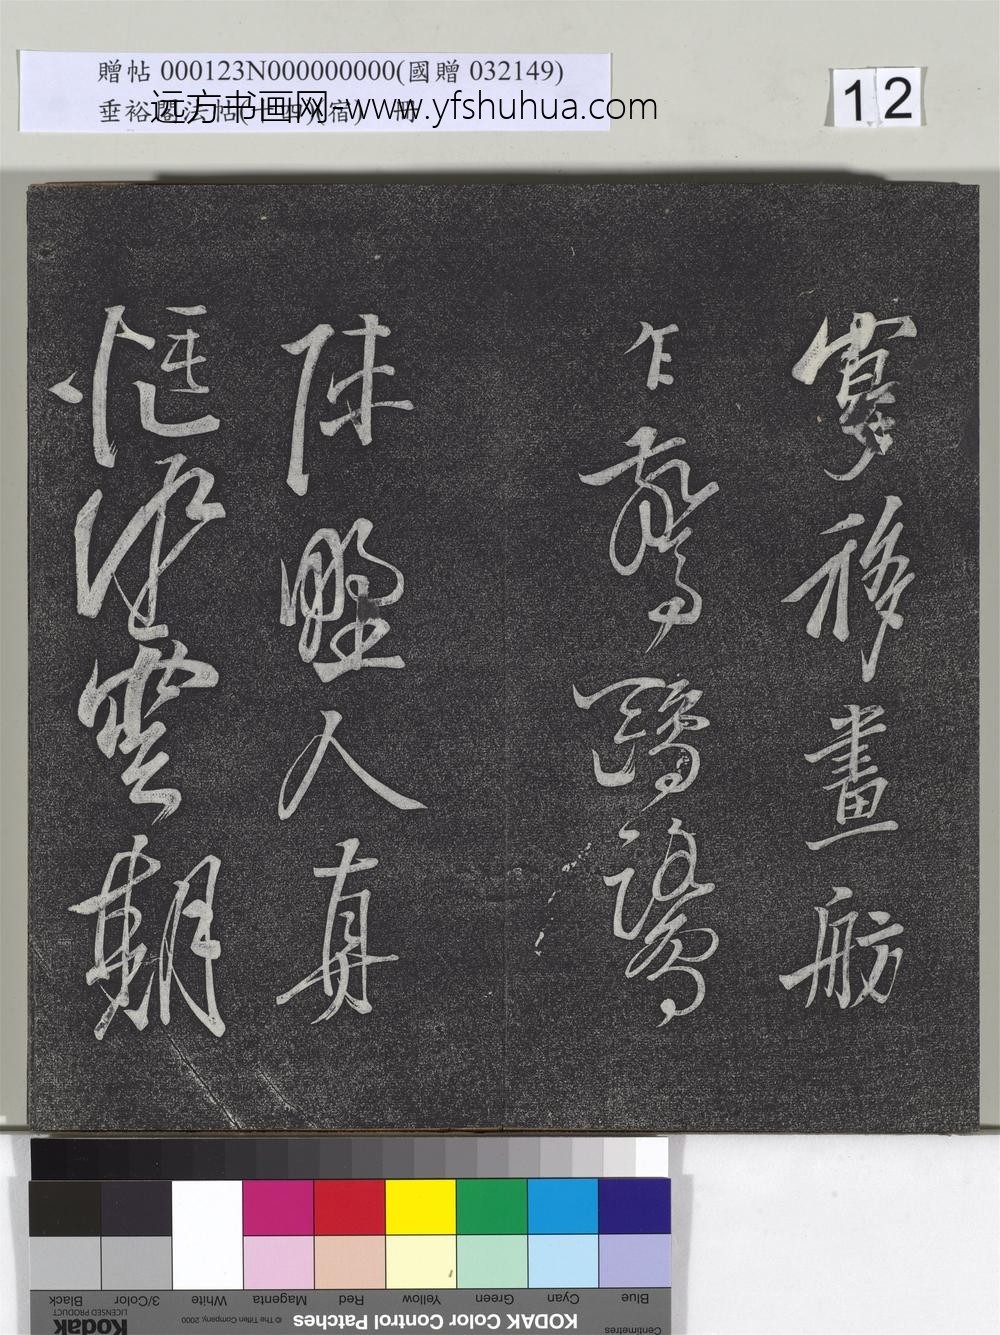 贈帖 000123N000000000(國贈 032149)
垂裕閣法帖(十四)(宿) 冊
远方书画网-www.yfshuhua.com
12
移畫舫
乍驚鷗鷺
陳野人真
雲朝
Blue
Cyan
Green
Yellow
Red
Magenta
White
3/Color
Black
KODAK Color Control Patches
© The Tiffen Company, 2000
Kodak
LICENSED PRODUCT
Centimetres